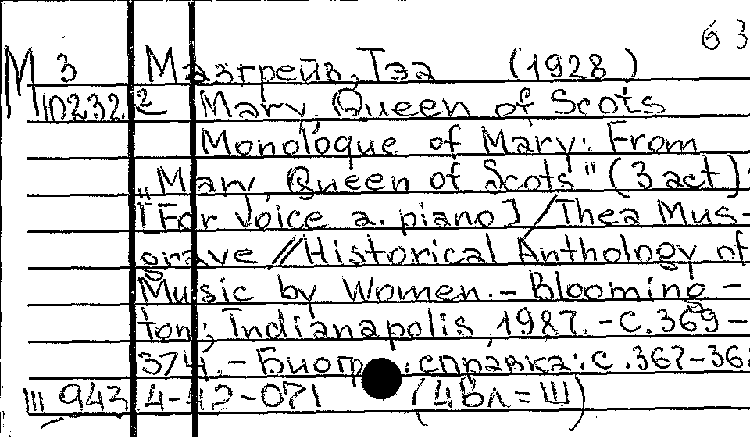 63
М 3 Мазгрейв, Тэа (1928 )
10232 2 Mary, Queen of Scots
Monologue of Mary: From
„Mary, Queen of Scots" (3 act):
[For voice a. piano] / Thea Mus-
grave // Historical Anthology of
Music by Women. - Blooming -
ton; Indianapolis, 1987. - С. 369 -
374. - Биогр. справка: с. 367-368
III 943 4-42-071 (4вл = Ш)